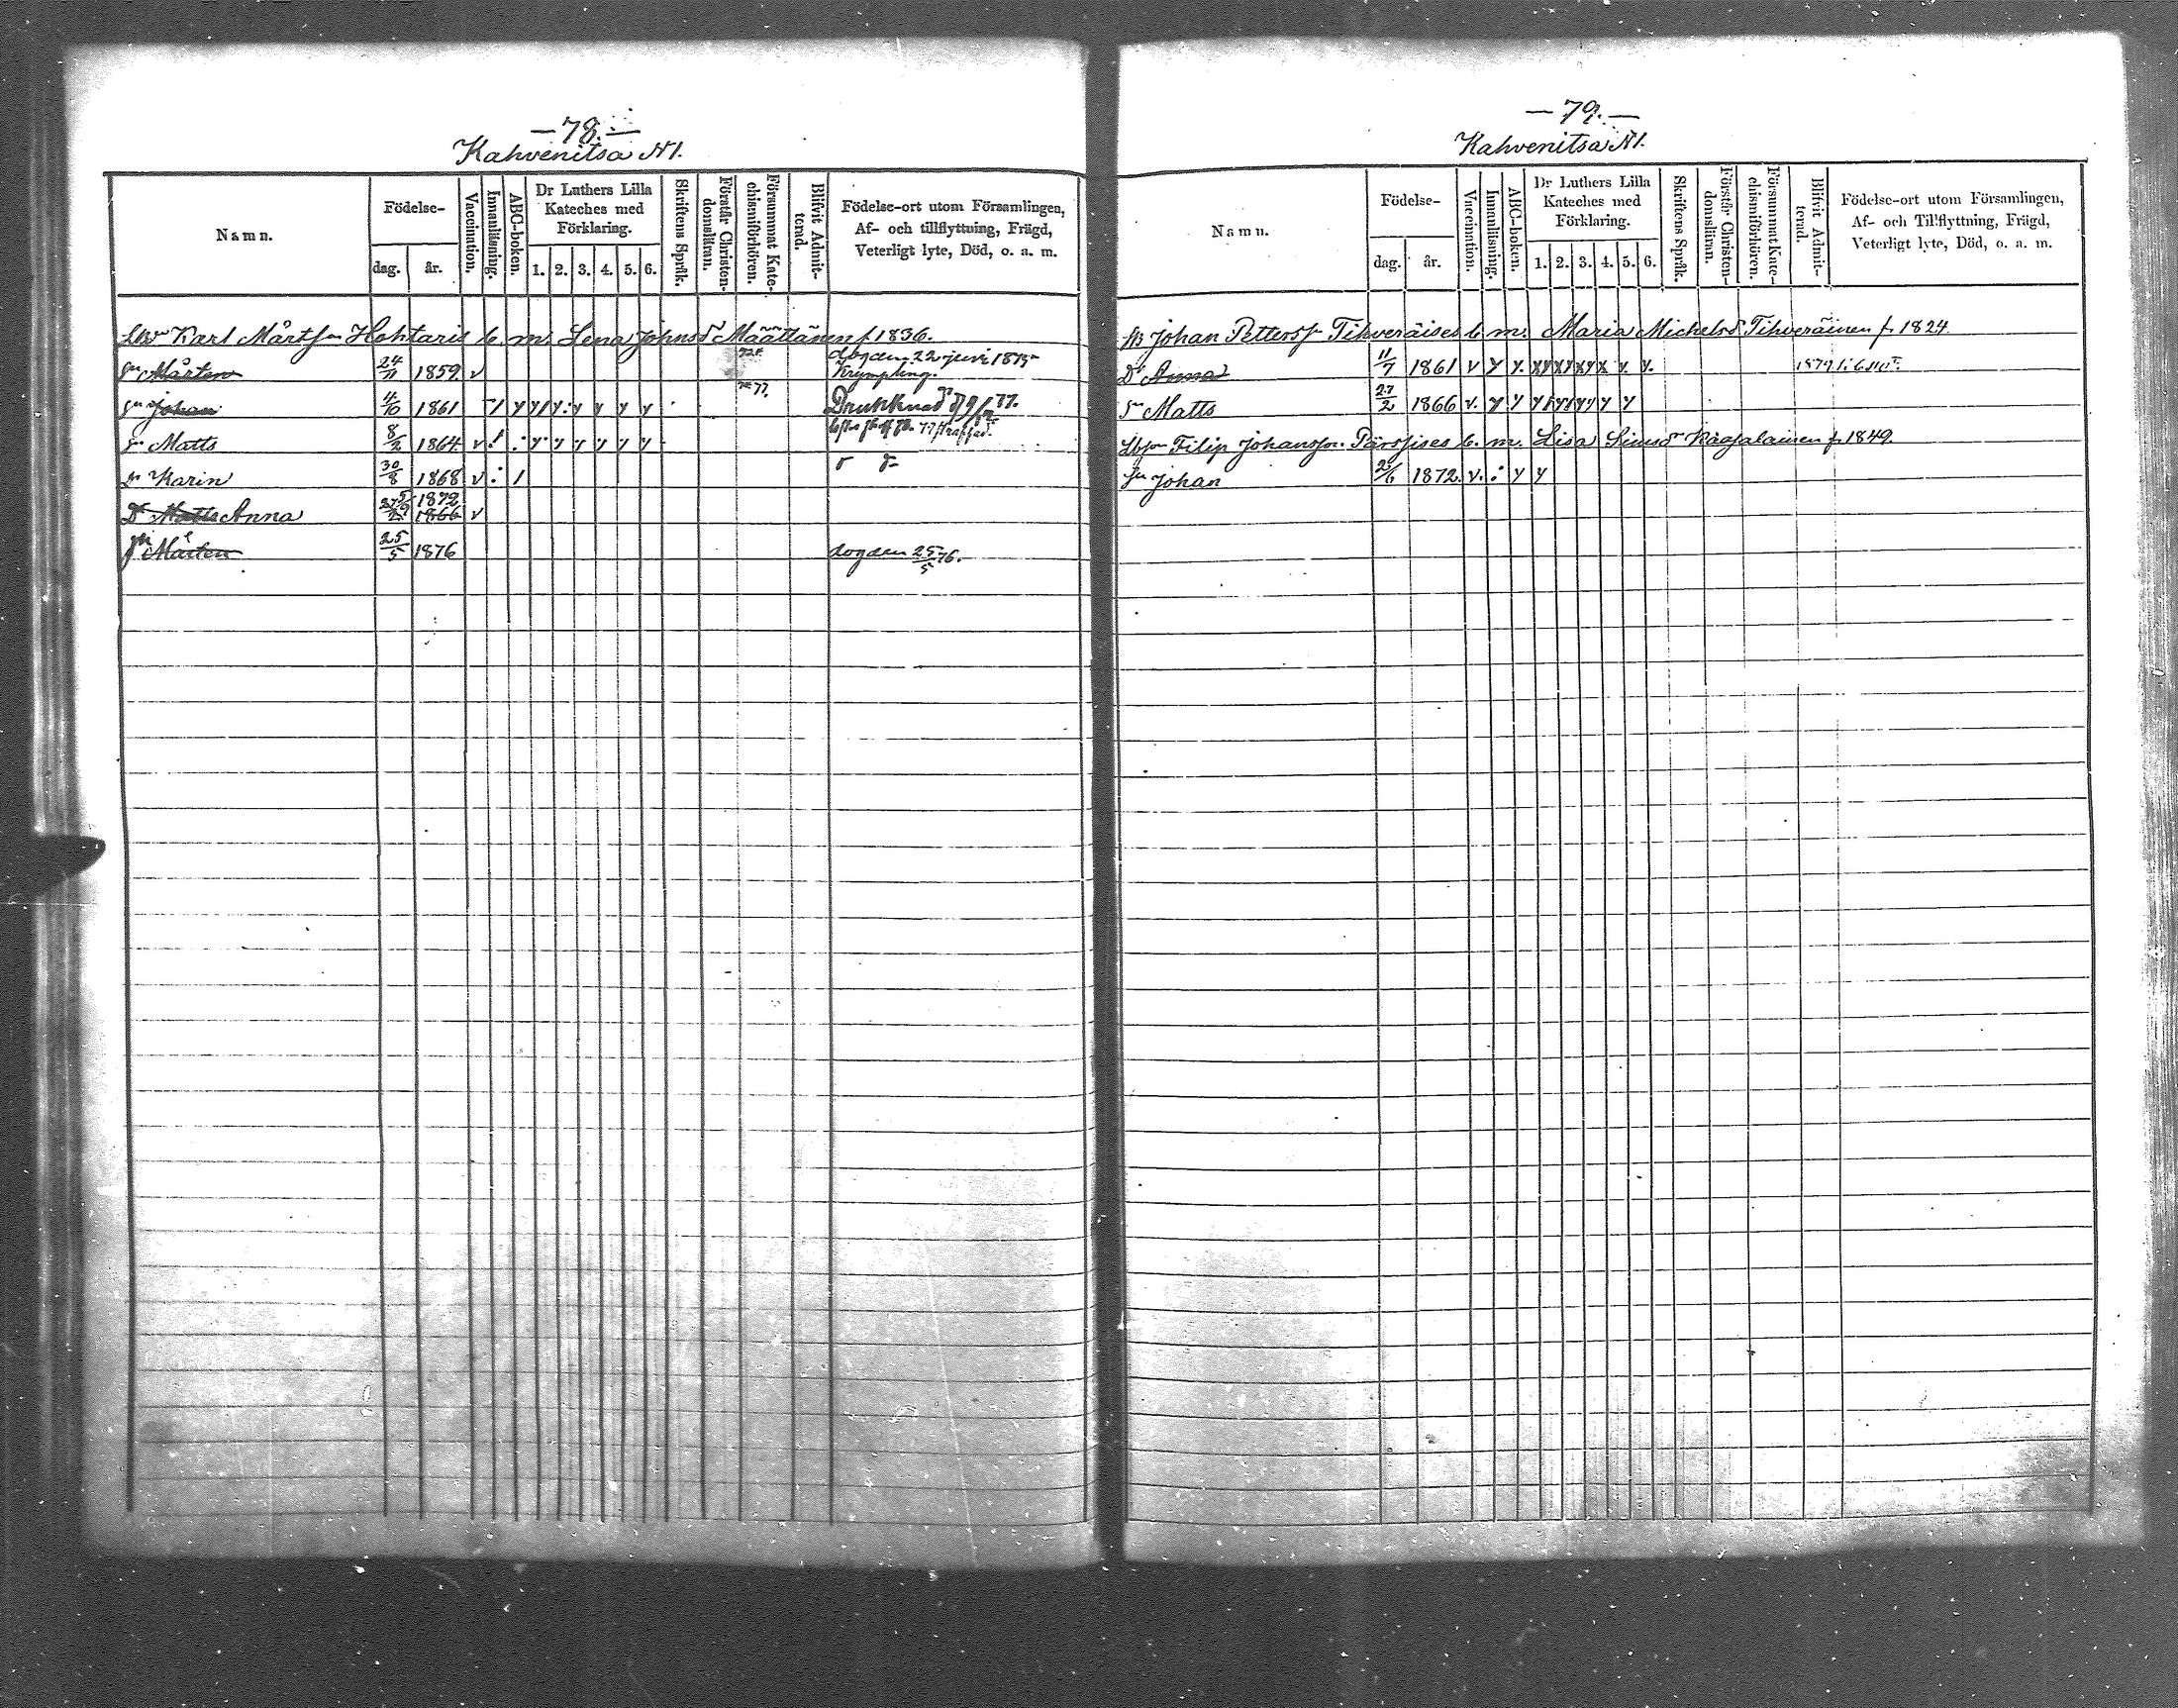 — 78. —
Kahvenitsa N1.
Namn.
Födelse-
dag. år.
Vaccination.
Innanläsning.
ABC-boken.
Dr Luthers Lilla
Kateches med
Förklaring.
1. 2. 3. 4. 5. 6.
Skriftens Språk.
Förstår Christen-
domsläran.
Försummat Kate-
chismiförhören.
Blifvit Admit-
terad.
Födelse-ort utom Församlingen,
Af- och tillflyttning, Frägd,
Veterligt lyte, Död, o. a. m.
Karl Mårtss Hohtaris b. m. Lena Johnsd Määttänen f 1836.
Sn Mårten 24/11 1859 v dog den 22 juni 1875
Krympling.
Sn Johan 4/10 1861 77. Drunknad d 9/ 77.
Sn Matts 8/2 1864 v
Dr Karin 30/8 1868 v
Dr Matts Anna 5/9 1872 27/2 1866 v
Sn Mårten 25/5 1876 dog den 25/5 76.
— 79. —
Kahvenitsa N1.
Namn.
Födelse-
dag. år.
Vaccination.
Innanläsning.
ABC-boken.
Dr Luthers Lilla
Kateches med
Förklaring.
1. 2. 3. 4. 5. 6.
Skriftens Språk.
Förstår Christen-
domsläran.
Försummat Kate-
chismiförhören.
Blifvit Admit-
terad.
Födelse-ort utom Församlingen,
Af- och Tillflyttning, Frägd,
Veterligt lyte, Död, o. a. m.
Johan Petterss Tihveräises b. m. Maria Michelsd Tihveräinen f 1824.
Dr Anna 11/7 1861 v y y. 1879
Sn Matts 27/2 1866 v. y y
Filip Johansson Pärssises b. m. Lisa Simsdr f 1849.
Sn Johan 25/6 1872 v. y y